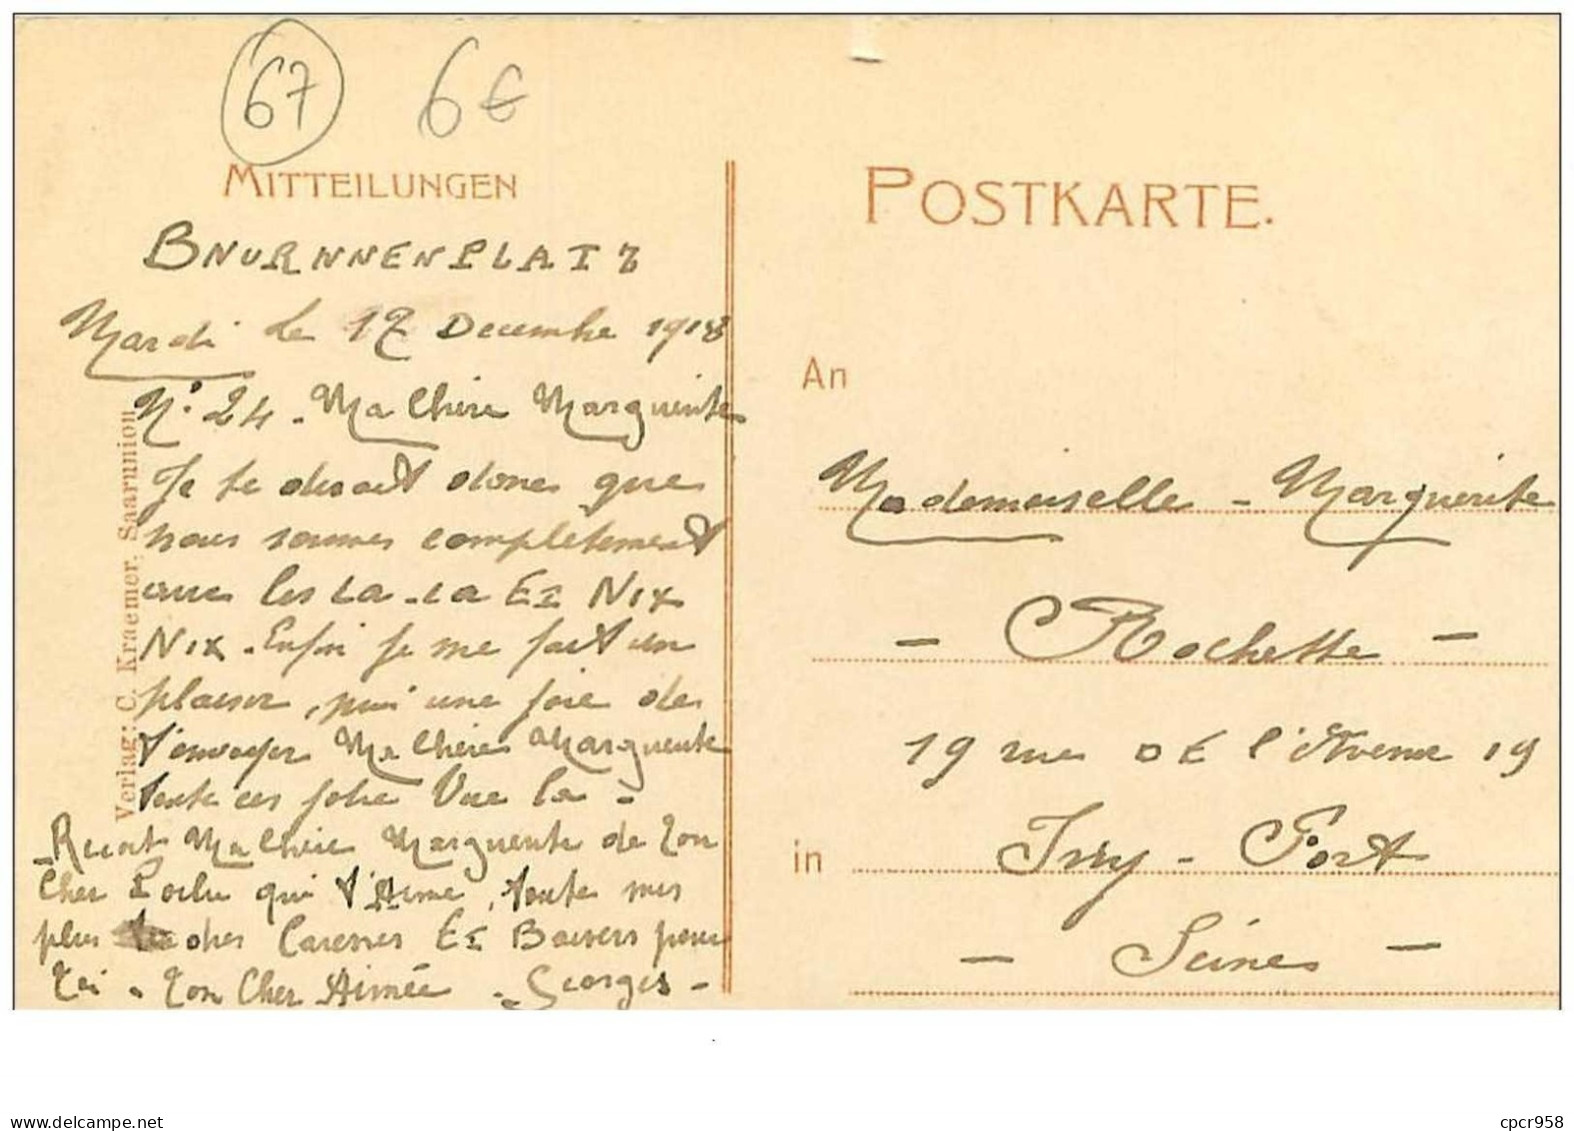 67 6€
MITTEILUNGEN
BNURNNENPLATZ
Mardi le 17 Decembre 1918
N° 24 - Ma Chere Marguerite
Je te disait donc que
nous sommes completement
avec les La-La Et Nix
Nix. Enfin je me fait un
plaisir, puis une joie de
t'envoyer Ma Chere Marguerite
toute ces jolie Vue la -
- Recoit Ma Chere Marguerite de ton
Cher Poilu qui t'Aime, toute mes
plus Caresses Et Baisers pour
Toi - Ton Cher Aimée - Georges -
Verlag: C. Kraemer. Saarunion
POSTKARTE.
An
Mademoiselle - Marguerite
- Rochette -
19 rue DE l'Avenir 19
in Ivry - Port
- Seine -
www.delcampe.net cpcr958